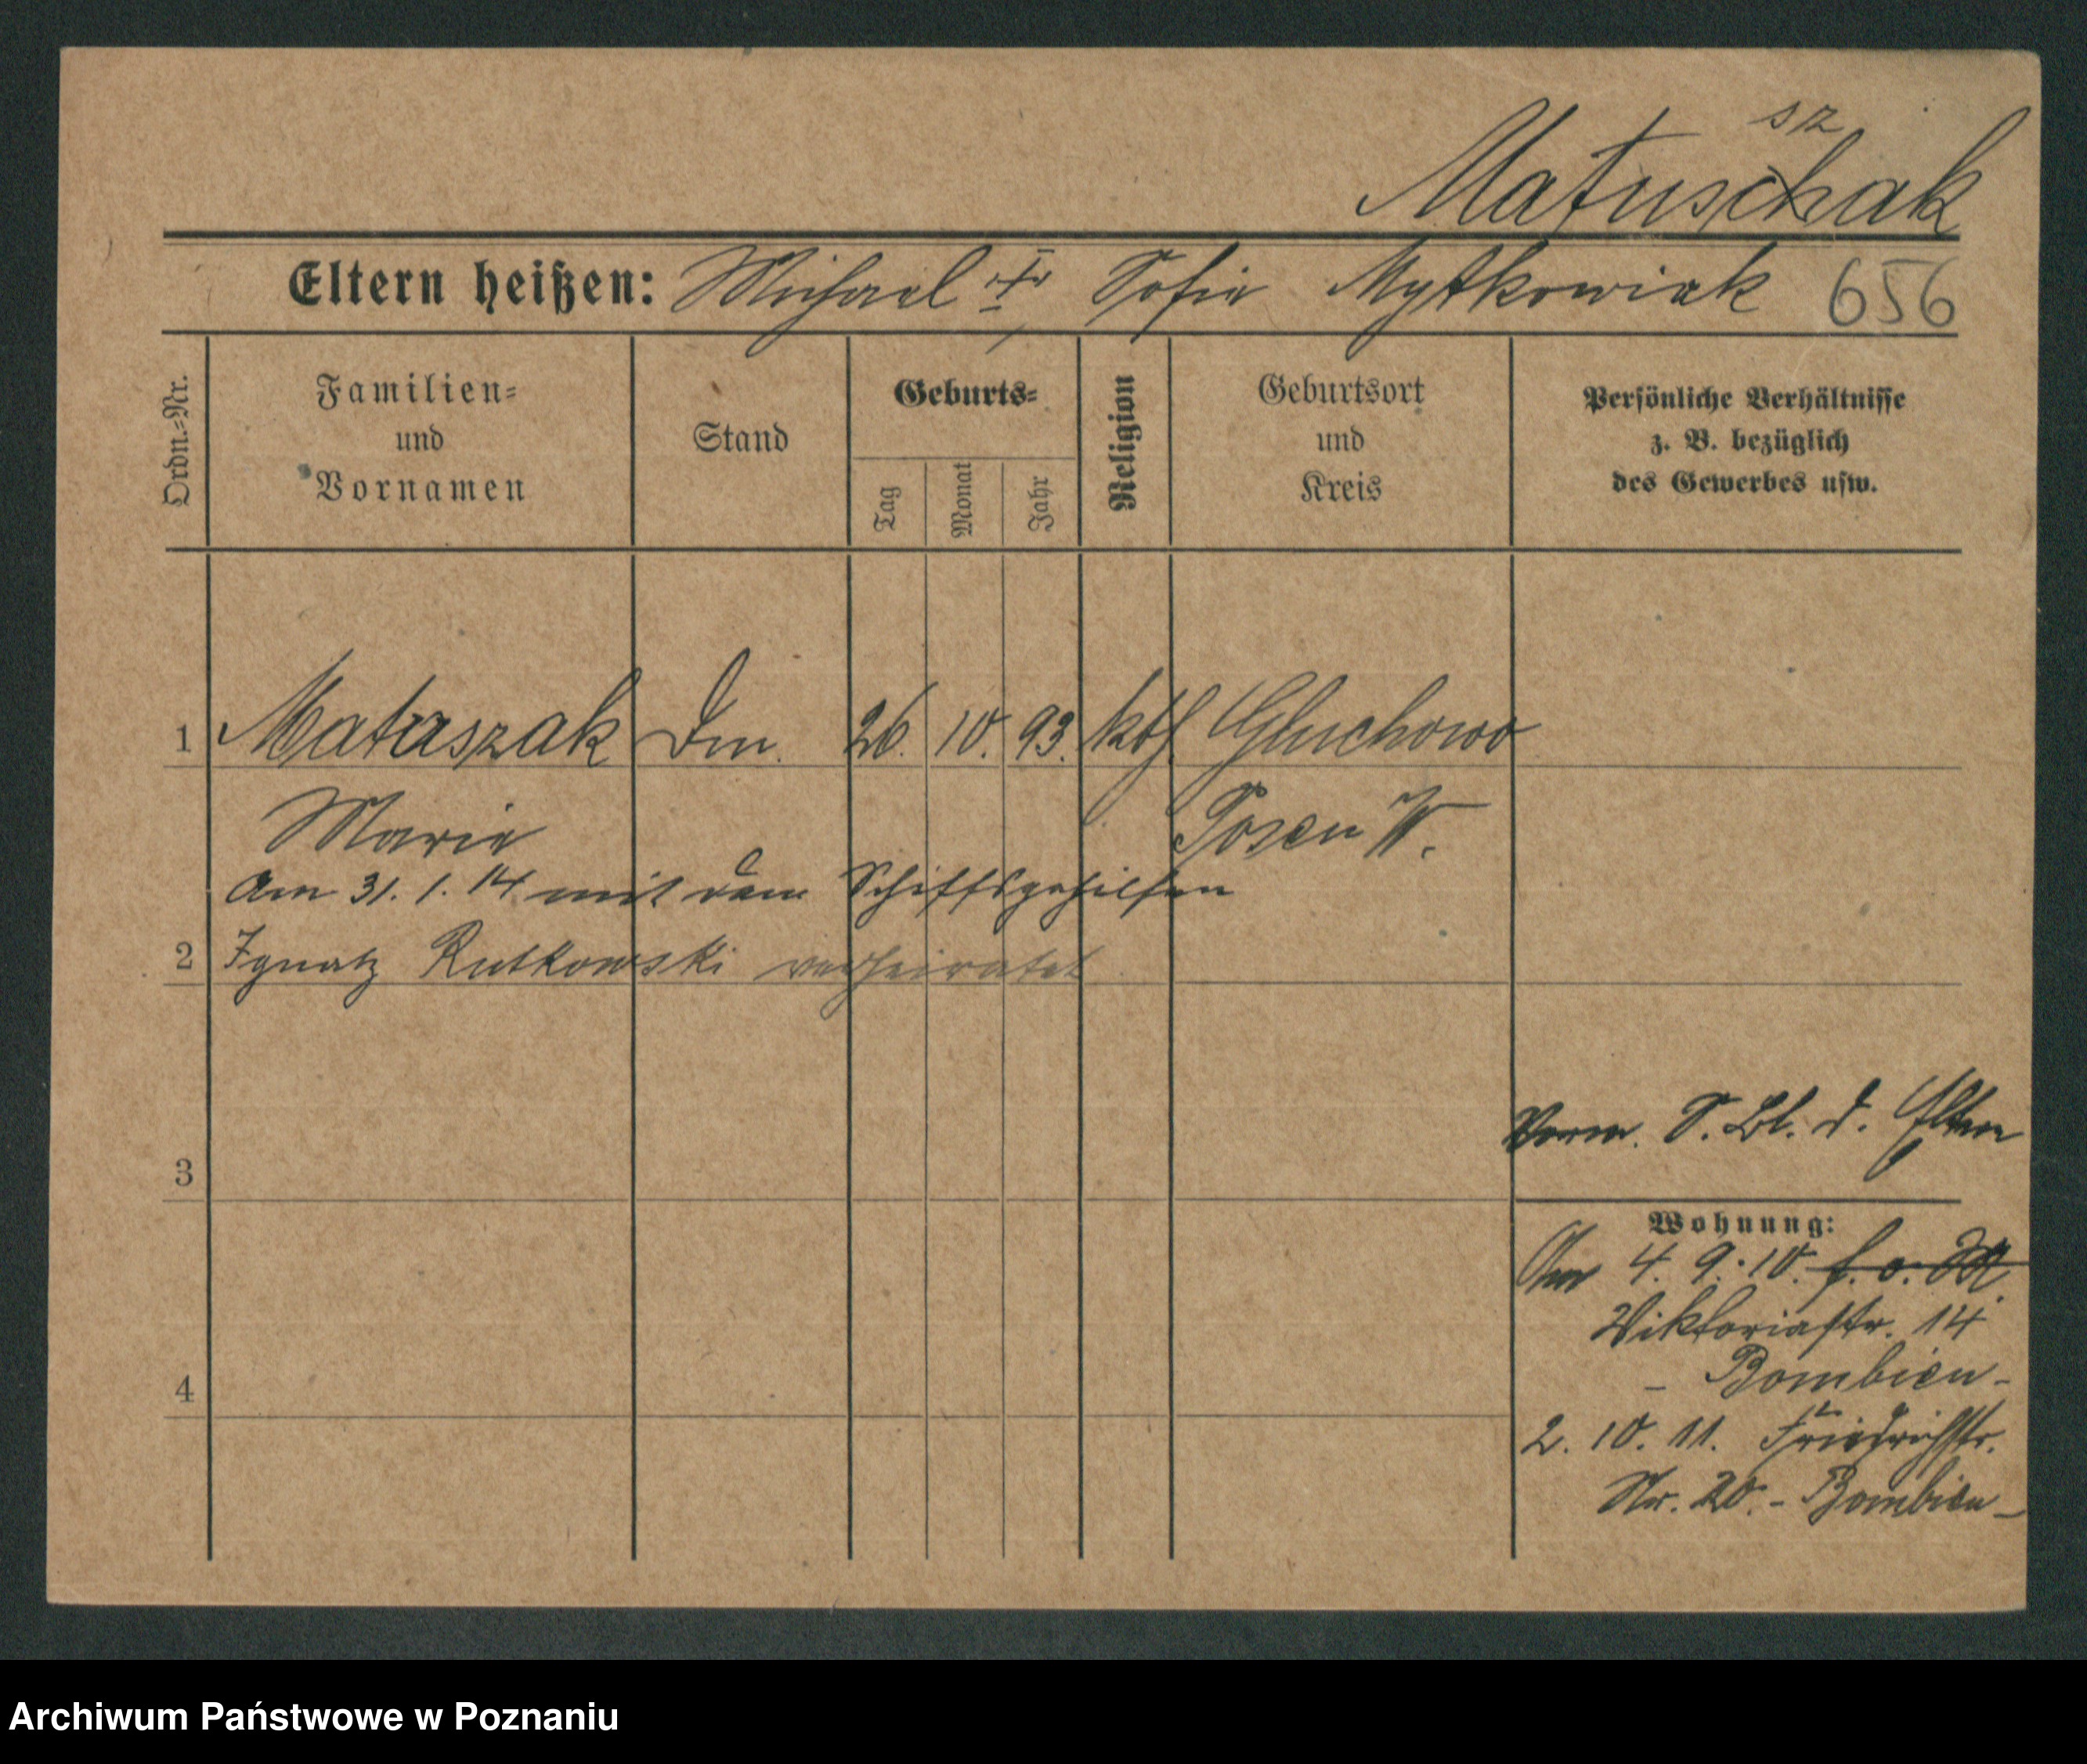 sz
Matuschak
Eltern heißen: Michael u Sofie Mytkowiak 656
Ordn.-Nr.
Familien-
und
Vornamen
Stand
Geburts-
Tag
Monat
Jahr
Religion
Geburtsort
und
Kreis
Persönliche Verhältnisse
z. B. bezüglich
des Gewerbes usw.
1 Matuszak Dm. 26. 10. 93. kth Gluchowo
Marie Posen W.
Am 31. 1. 14 mit dem Schiffsgehilfen
2 Ignatz Rutkowski verheiratet
Verm. S. Bl. d. Eltern
3
Wohnung:
4. 9. 10. f. o. M.
Viktoriastr. 14
- Bombien -
4
2. 10. 11. Friedrichstr.
Nr. 20. - Bombien -
Archiwum Państwowe w Poznaniu